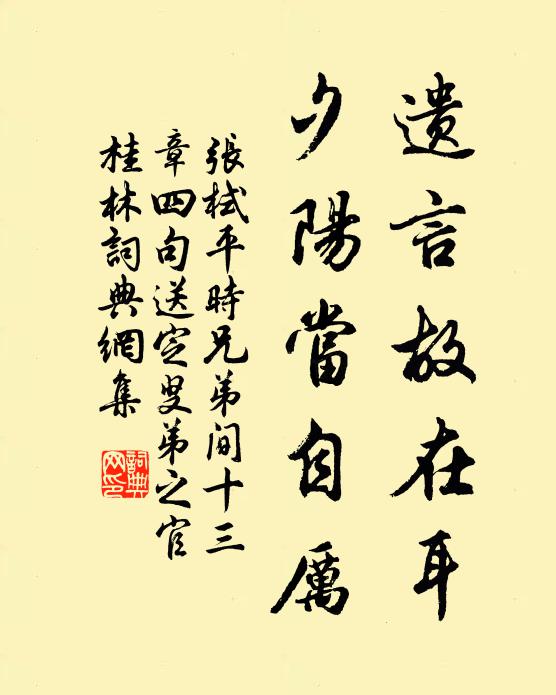 遗言故在耳
夕陽當自厲
張栻平時兄弟间十三
章四句送定叟弟之官
桂林詞典網集
詞典网印